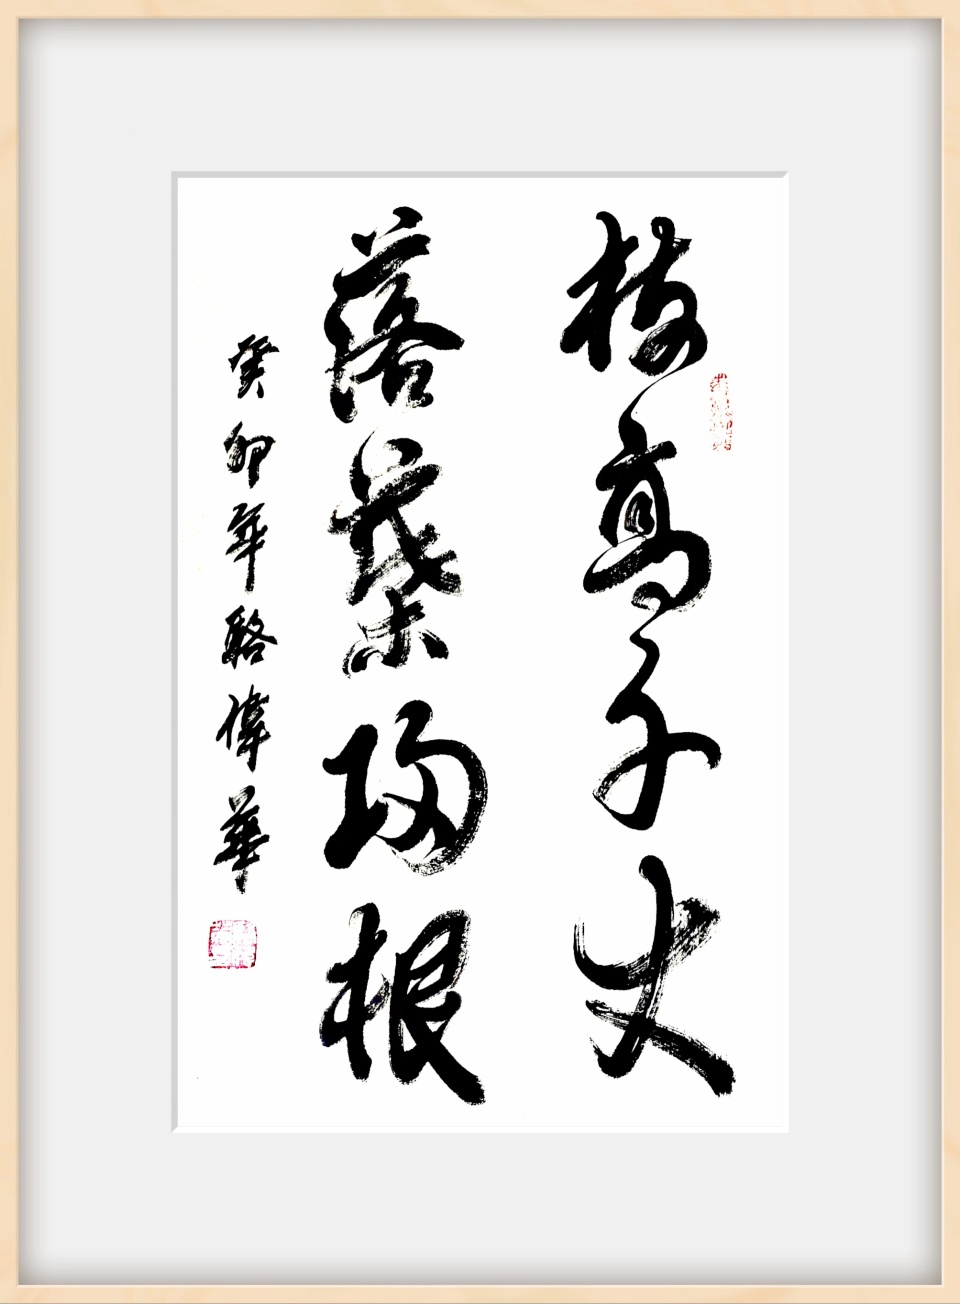 樹高千丈
落葉歸根
癸卯年駱偉華